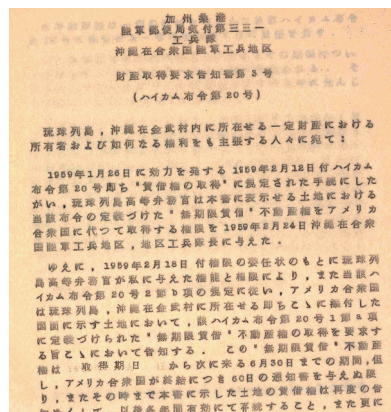 加州桑港
陸軍郵便局気付第三三一
工兵隊
沖縄在合衆国陸軍工兵地区
財産取得要求告知書第5号
(ハイカム布令第20号)
琉球列島,沖縄在金武村内に所在せる一定財産における
所有者および如何なる権利をも主張する人々に宛て:
1959年1月26日に効力を発する1959年2月12日付ハイカム
布令第20号即ち"賃借権の取得"に規定された手続にした
がい,琉球列島高等弁務官は本書に表示せる土地における
当該布令の定義づけた"無期限賃借"不動産権をアメリカ
合衆国に代つて取得する権限を1959年2月24日沖縄在合衆
国陸軍工兵地区,地区工兵隊長に与えた.
ゆえに,1959年2月18日付権限の委任状のもとに琉球列
島高等弁務官が私に与えた権能と権限により,また当該ハ
イカム布令第20号2節b項の規定に従い,アメリカ合衆国
は琉球列島,沖縄在金武村に所在せる即ちこゝに添付した
図面に示す土地において,該ハイカム布令第20号1節a項
に定義づけられた"無期限賃借"不動産権の取得を要求す
る旨こゝにおいて告知する. この"無期限賃借"不動産
権は 取得期日 から次に来る6月30日までの期間,但
し,アメリカ合衆国が終結につき60日の通知書を与えぬ限
り,またその時まで本書に示した土地の賃借権は再度の告
知なくして,以後各年間有効にて存続すること,また更に